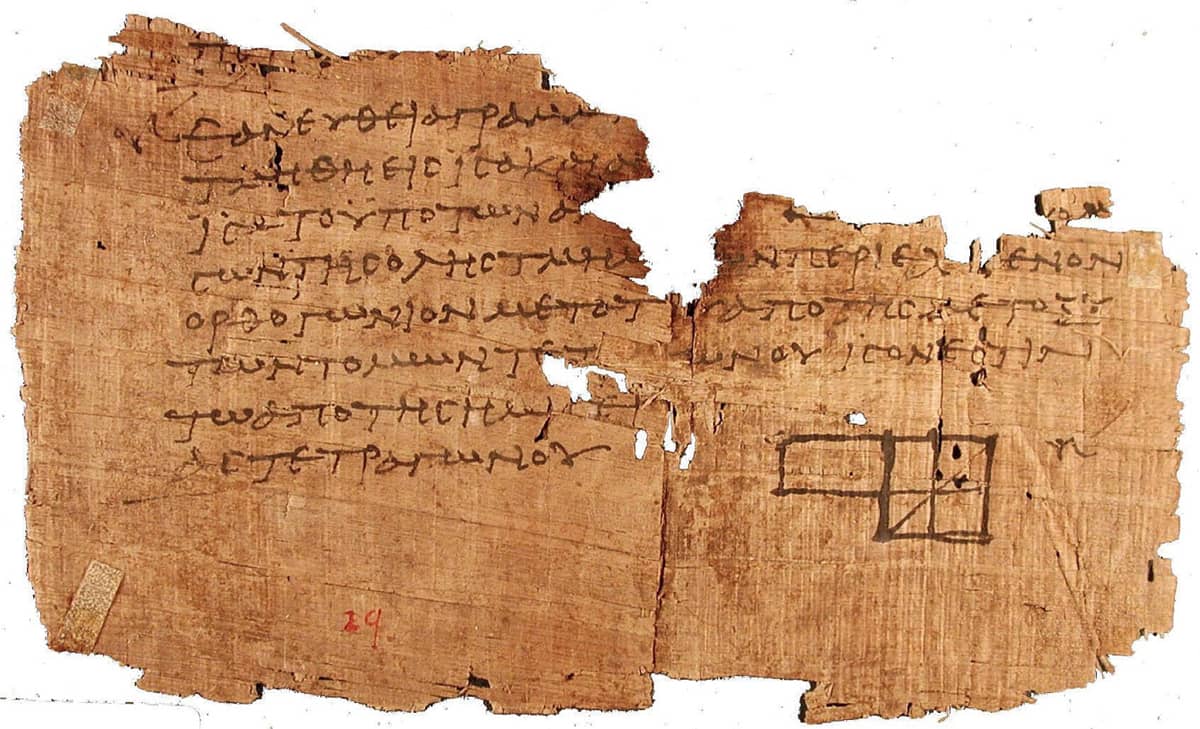 ΕΑΝ ΕΥΘΕΙΑ ΓΡΑΜ
ΤΜΗΘΗ ΕΙϹ ΙϹΑ Κ ΑΙ ΑΝ
ΙϹΑ ΤΟ ΥΠΟ ΤΩΝ Α
ϹΩΝ ΤΗϹ ΟΛΗϹ ΤΜΗΜ ΩΝ ΠΕΡΙΕΧΟΜΕΝΟΝ
ΟΡΘΟΓΩΝΙΟΝ ΜΕΤΑ ΤΟΥ ΑΠΟ ΤΗϹ ΜΕΤΟΞΥ
ΤΩΝ ΤΟΜΩΝ ΤΕΤ ΓΩΝΟΥ ΙϹΟΝ ΕϹΤΙΝ
ΤΩ ΑΠΟ ΤΗϹ ΗΜΙϹΕΙ
ΑϹ ΤΕΤΡΑΓΩΝΟΥ
29